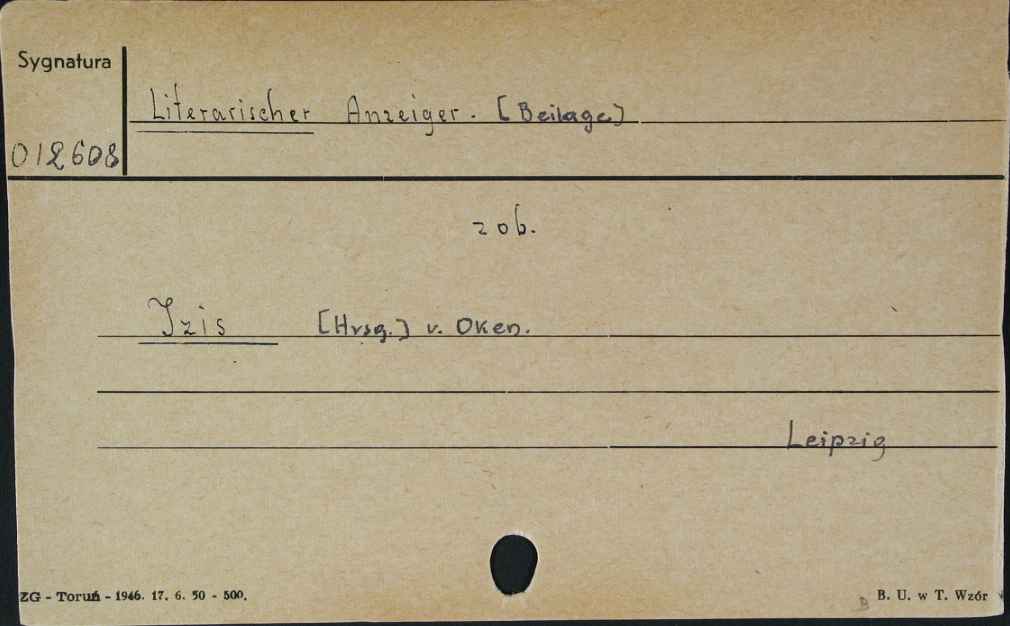 Sygnatura
Literarischer Anzeiger. [Beilage]
012608
zob.
Izis [Hrsg.] v. Oken.
Leipzig
ZG - Toruń - 1946. 17. 6. 50 - 500.
B B. U. w T. Wzór